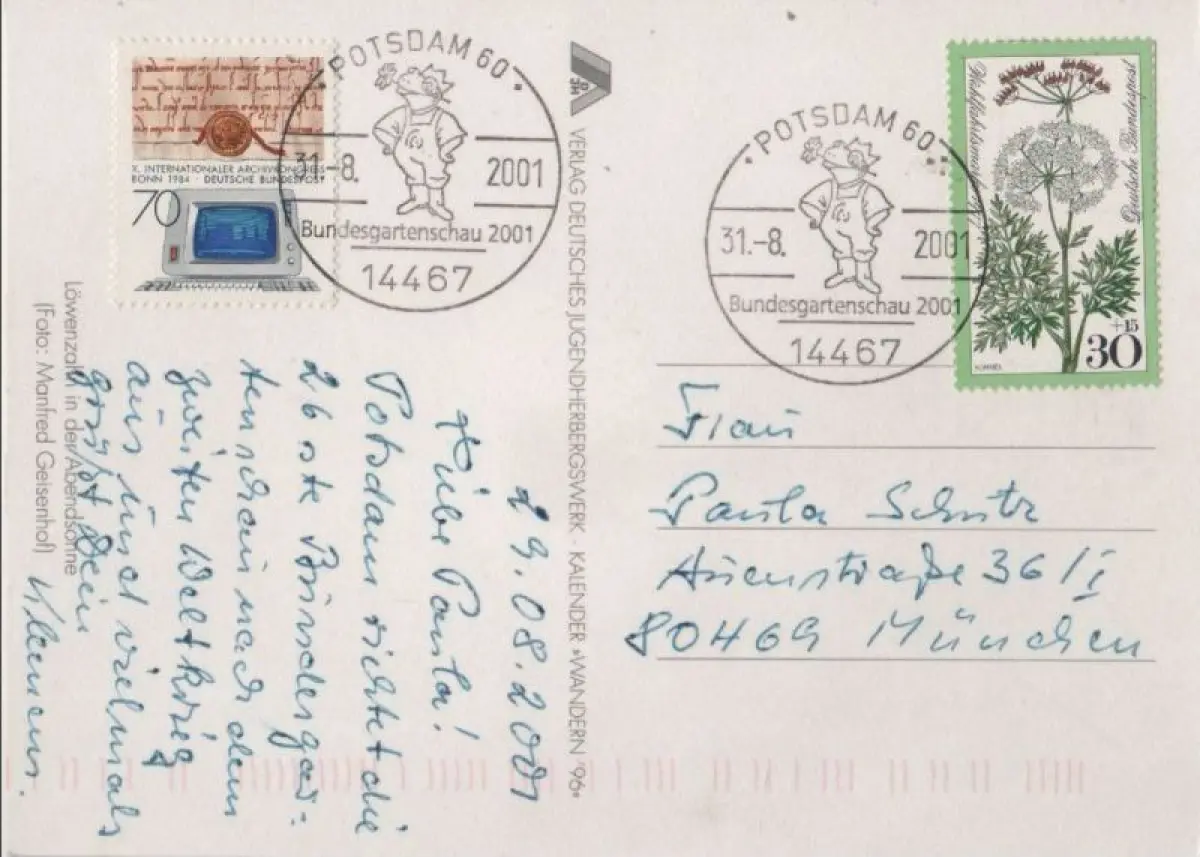 X. INTERNATIONALER ARCHIVKONGRESS
BONN 1984 · DEUTSCHE BUNDESPOST
70
POTSDAM 60
31.-8. 2001
Bundesgartenschau 2001
14467
POTSDAM 60
31.-8. 2001
Bundesgartenschau 2001
14467
Deutsche Bundespost
+15
30
DJH
VERLAG DEUTSCHES JUGENDHERBERGSWERK · KALENDER »WANDERN '96«
29.08.2001
Liebe Paula!
Potsdam richtet die
26ste Bundesgar-
tenschau nach dem
zweiten Weltkrieg
aus und vielmals
grüßt Dein
Klemens.
Löwenzahn in der Abendsonne
(Foto: Manfred Geisenhof)
Frau
Paula Schutz
Auenstraße 36/I
80469 München